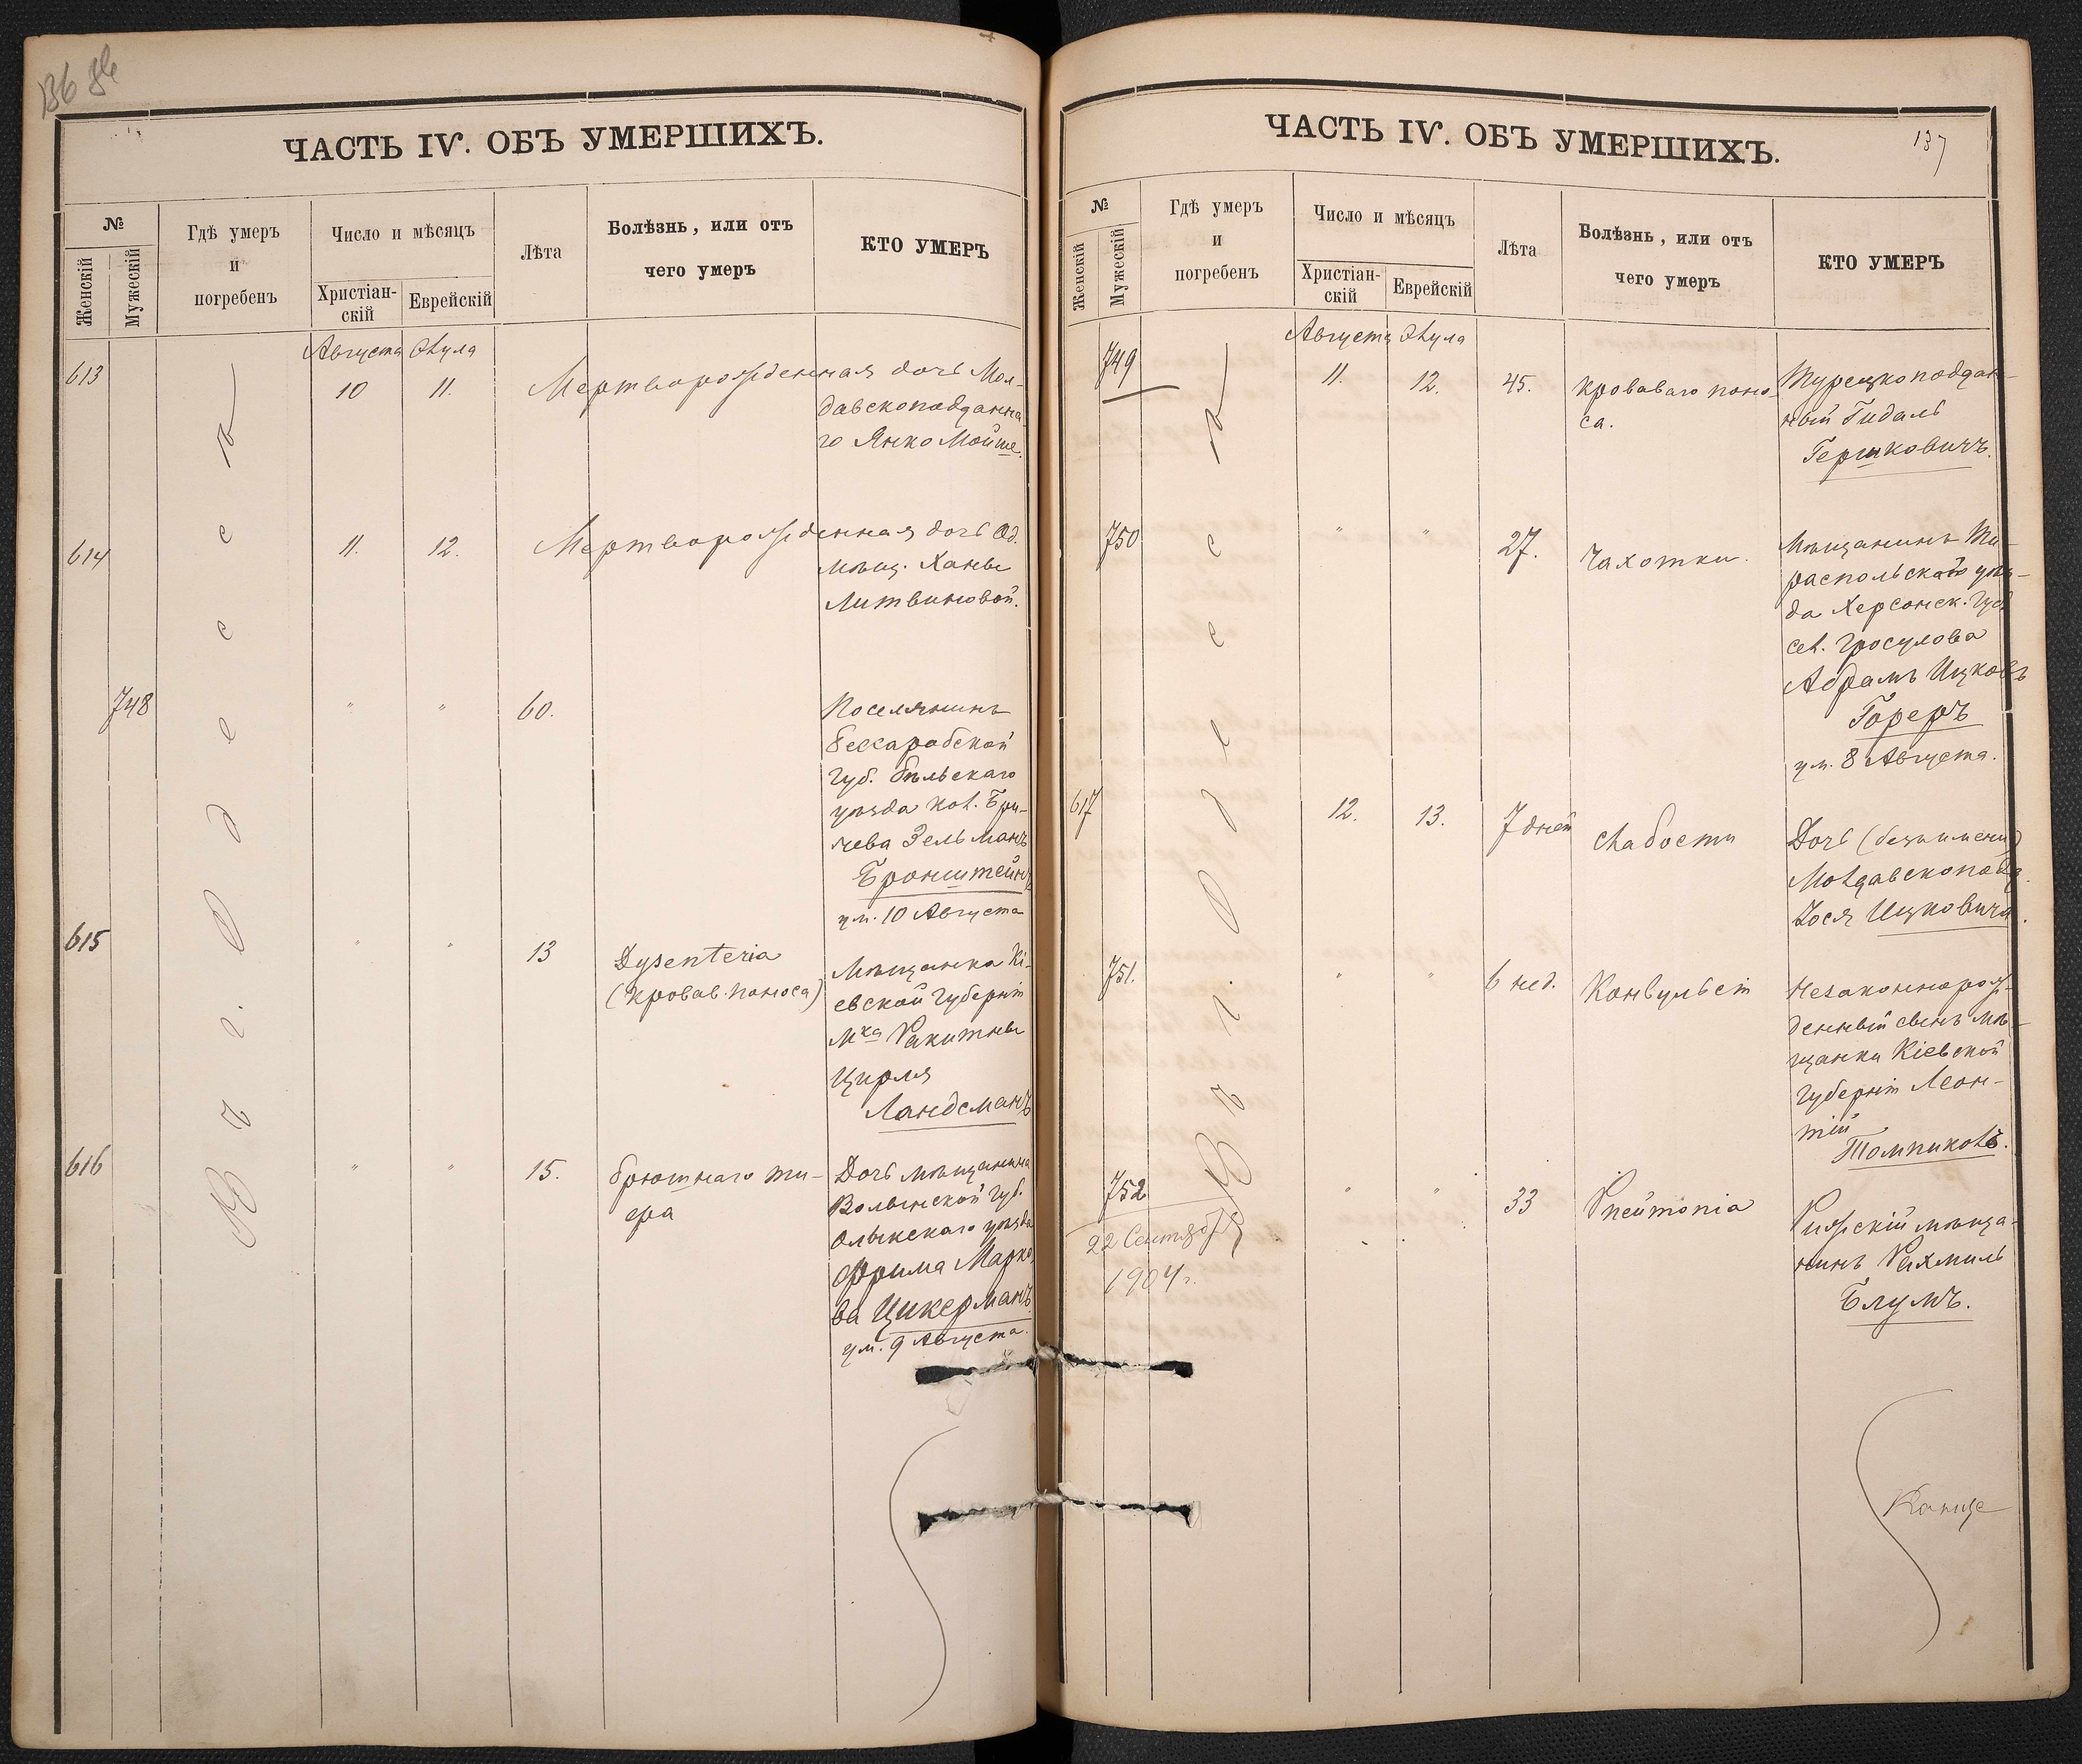 136 86
ЧАСТЬ IV. ОБЪ УМЕРШИХЪ.
№
Женскій
Мужескій
Гдѣ умеръ
и
погребенъ
Число и мѣсяцъ
Христіан-
скій
Еврейскій
Лѣта
Болѣзнь, или отъ
чего умеръ
КТО УМЕРЪ
Въ г. Одессѣ
Августа Элула
613 10 11. Мертворожденная дочь Мол-
давскоподданна
го Янко Мойше.
614 11. 12. Мертворожденная дочь Од.
мѣщ. Ханы
Литвиновой.
748 " " 60. Поселянинъ
Бессарабской
губ. Бѣльскаго
уѣзда кол. Бри-
чева Зельманъ
Бронштейнъ
ум. 10 Августа
615 " " 13 Dysenteria Мѣщанка Кі-
(кровав. поноса) евской губерніи
мка Ракитны
Цирля
Ландсманъ
616 " " 15. брюшнаго ти- Дочь мѣщанина
фа Волынской губ.
уѣзда
Фрима Марко
ва Цикерманъ
ум. 9 Августа.
ЧАСТЬ IV. ОБЪ УМЕРШИХЪ.
137
№
Женскій
Мужескій
Гдѣ умеръ
и
погребенъ
Число и мѣсяцъ
Христіан-
скій
Еврейскій
Лѣта
Болѣзнь, или отъ
чего умеръ
КТО УМЕРЪ
Въ г. Одессѣ
Августа Элула
749 11. 12. 45. Кроваваго поно- Турецкоподдан-
са. ный Гидаль
Гершковичъ.
750 " " 27. Чахотки. Мѣщанинъ Ти-
распольскаго уѣз-
да Херсонск. губ
сел. Гросулова
Абрамъ Ицковъ
Гореръ
ум. 8 Августа.
617 12. 13. 7 дней слабости Дочь (безъ имени)
Молдавскопод.
Іося Ицковича.
751. " " 6 нед. Конвульсіи Незаконнорож-
денный сынъ мѣ-
щанки Кіевской
губерніи Леон-
тій
752 " " 33 Pneumonia Ряжскій мѣща-
нинъ Рахмиль
Блумъ.
22 Сентября
1904 г.